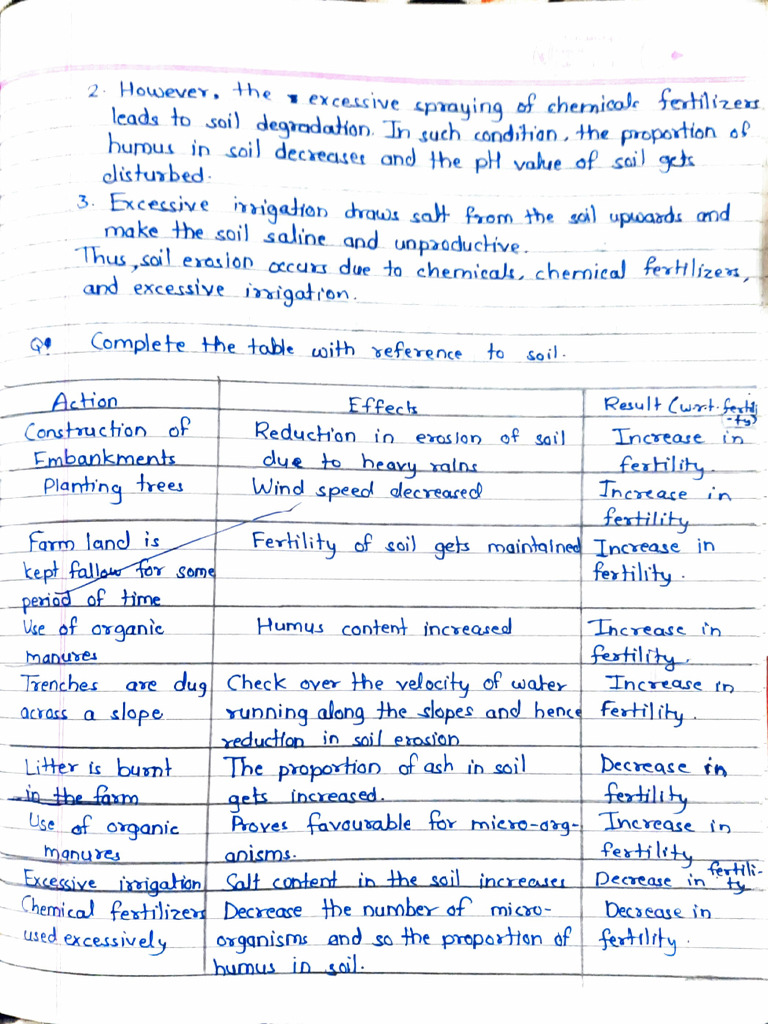 2. However, the excessive spraying of chemicals fertilizers
leads to soil degradation. In such condition, the proportion of
humus in soil decreases and the pH value of soil gets
disturbed.
3. Excessive irrigation draws salt from the soil upwards and
make the soil saline and unproductive.
Thus, soil erosion occurs due to chemicals, chemical fertilizers,
and excessive irrigation.
Q. Complete the table with reference to soil.
Action Effects Result (w.r.t. fertili
-ty)
Construction of Reduction in erosion of soil Increase in
Embankments due to heavy rains fertility.
Planting trees Wind speed decreased Increase in
fertility
Farm land is Fertility of soil gets maintained Increase in
kept fallow for some fertility.
period of time
Use of organic Humus content increased Increase in
manures fertility.
Trenches are dug Check over the velocity of water Increase in
across a slope running along the slopes and hence fertility.
reduction in soil erosion
Litter is burnt The proportion of ash in soil Decrease in
in the farm gets increased. fertility
Use of organic Proves favourable for micro-org- Increase in
manures anisms. fertility
Excessive irrigation Salt content in the soil increases Decrease in fertili-
ty
Chemical fertilizers Decrease the number of micro- Decrease in
used excessively organisms and so the proportion of fertility.
humus in soil.